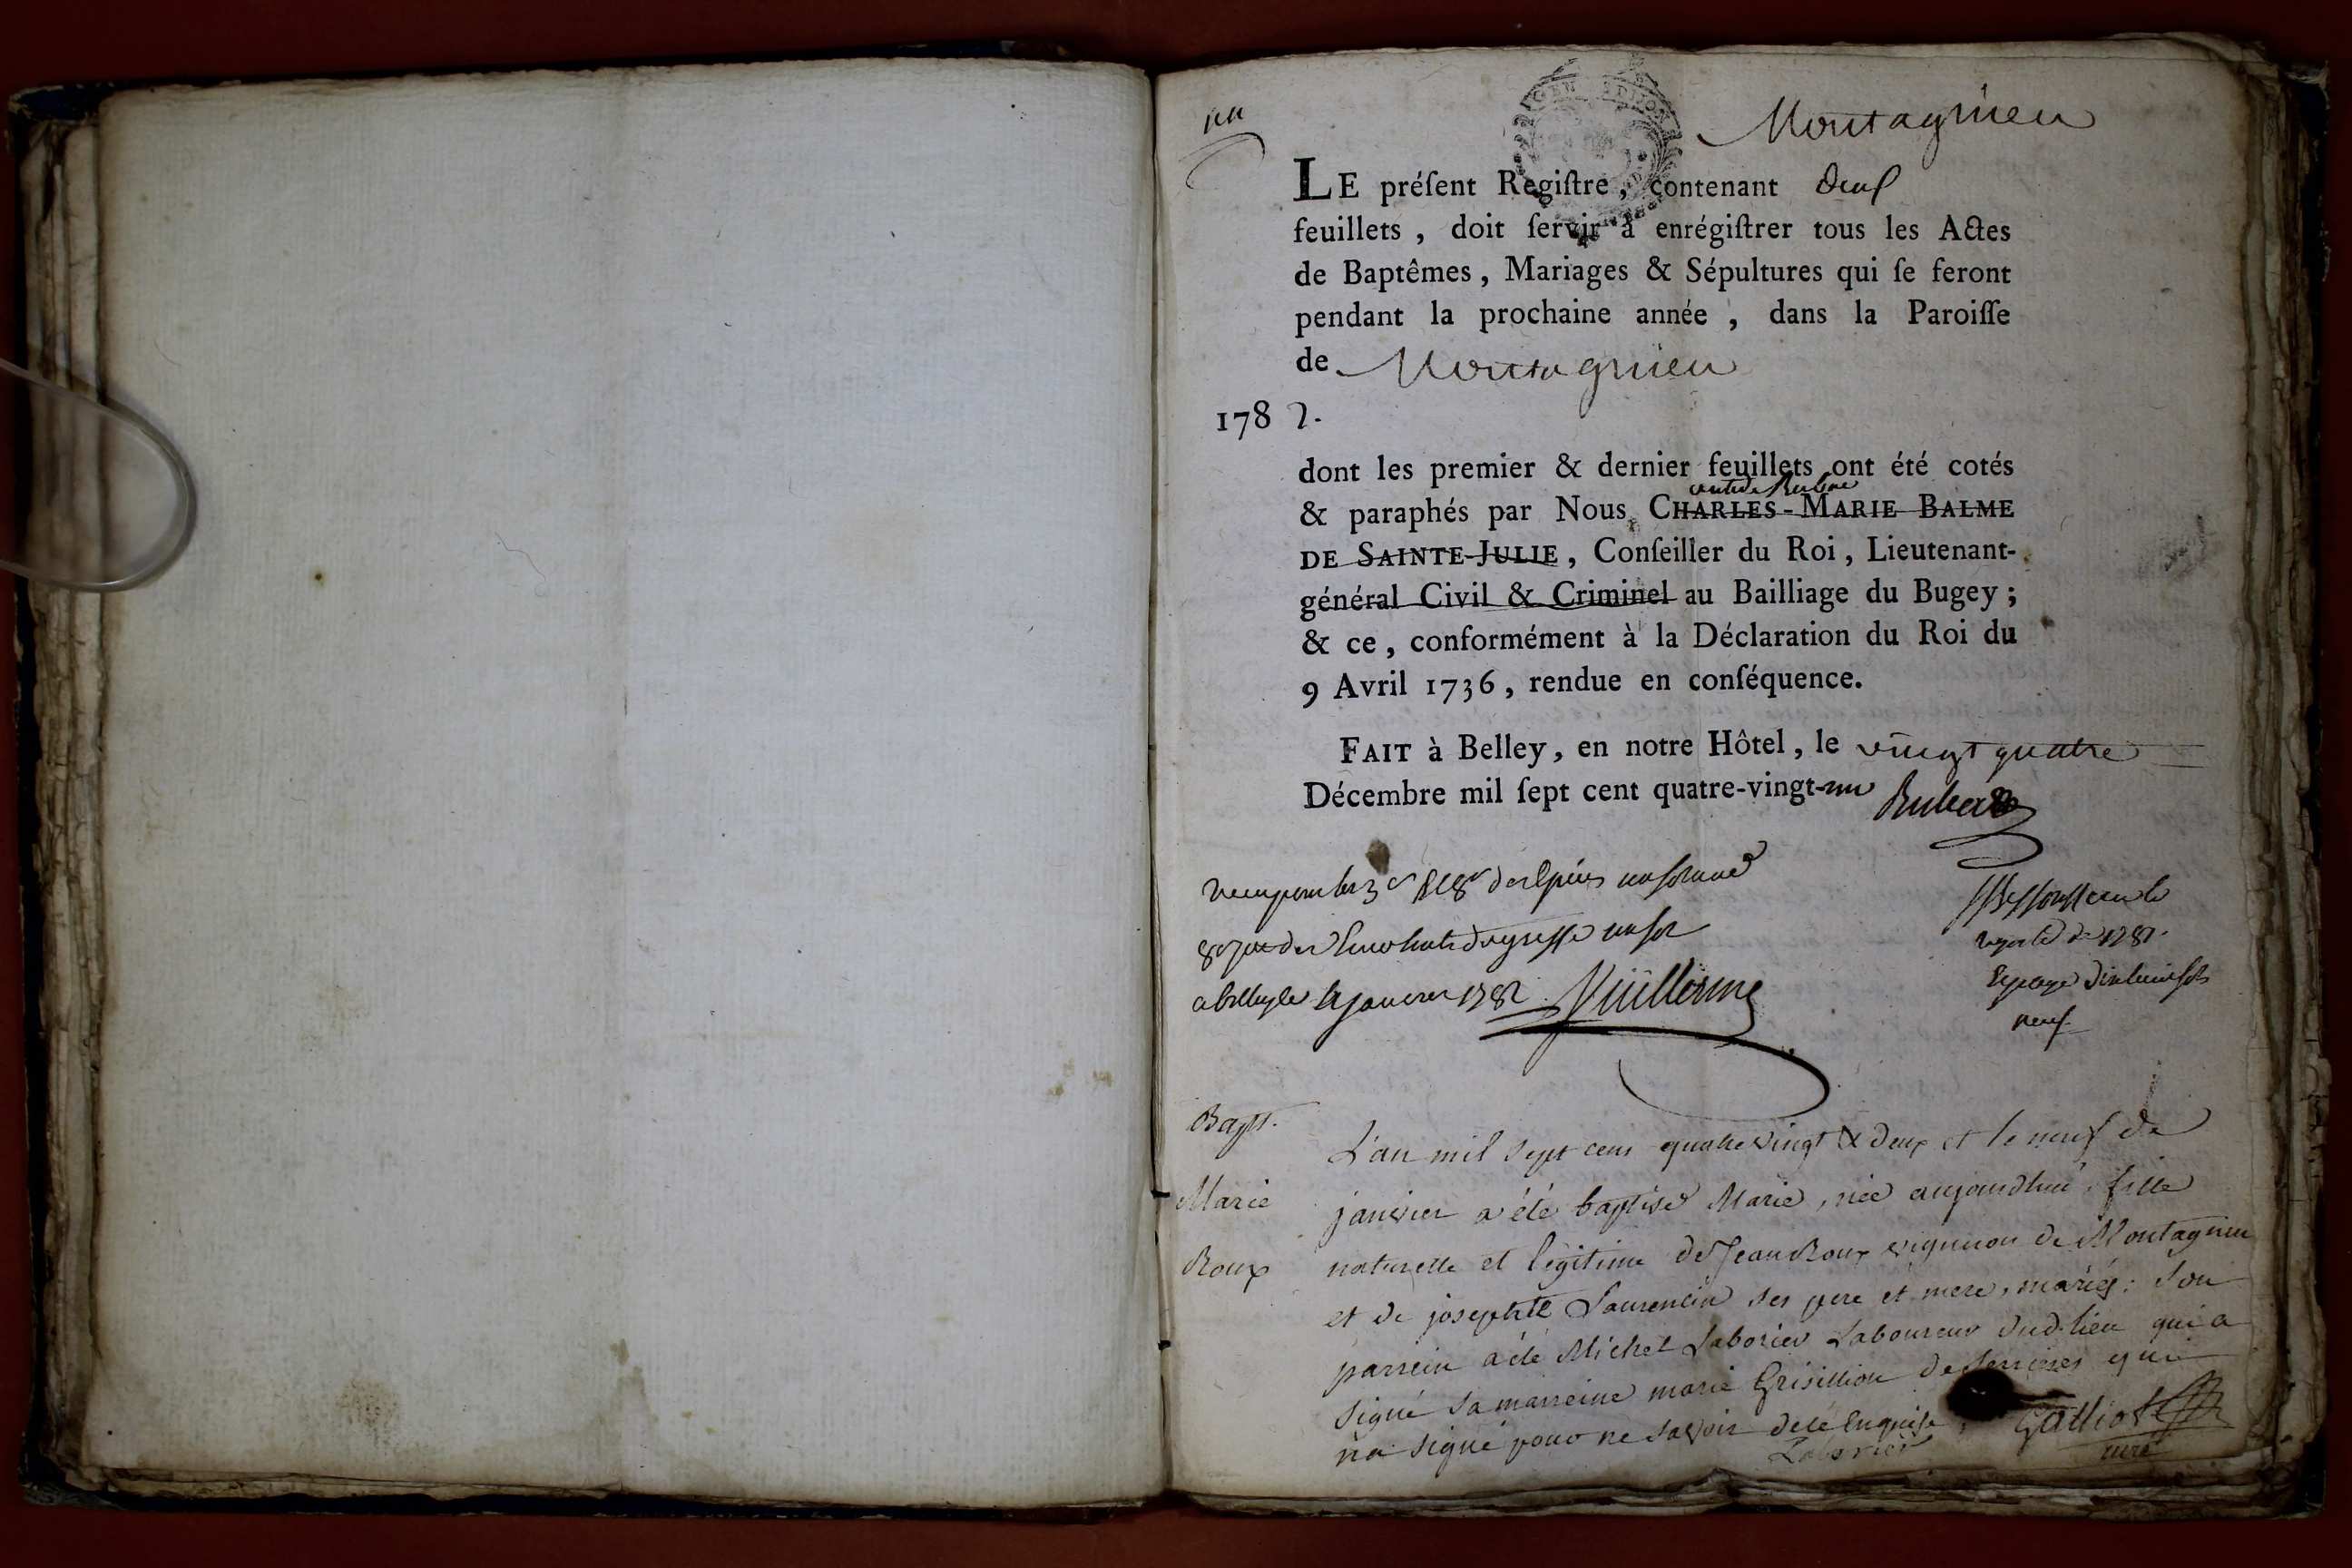 un
Montagnieu
LE préſent Regiſtre, contenant
feuillets, doit ſervir à enrégiſtrer tous les Actes
de Baptêmes, Mariages & Sépultures qui ſe feront
pendant la prochaine année, dans la Paroiſſe
de Montagnieu
1782.
dont les premier & dernier feuillets ont été cotés
& paraphés par Nous CHARLES-MARIE BALME
DE SAINTE-JULIE, Conſeiller du Roi, Lieutenant-
général Civil & Criminel au Bailliage du Bugey;
& ce, conformément à la Déclaration du Roi du
9 Avril 1736, rendue en conſéquence.
FAIT à Belley, en notre Hôtel, le vingt quatre
Décembre mil ſept cent quatre-vingt-un
un sol
janvier 1782 Vuillerme
neuf
Bapt.
Marie
Roux
L'an mil sept cens quatre vingt & deux et le neuf de
janvier a été baptisé Marie, née aujourdhui, fille
naturelle et légitime de Jean Roux vigneron de Montagnieu
et de josephte Laurencin ses pere et mere, mariés: son
parrein a été Michel Laborier Laboureur dud. lieu qui a
signé sa marreine marie Grisillion de serrieres qui
n'a signé pour ne savoir de ce enquise, Galliot
Laborier
curé